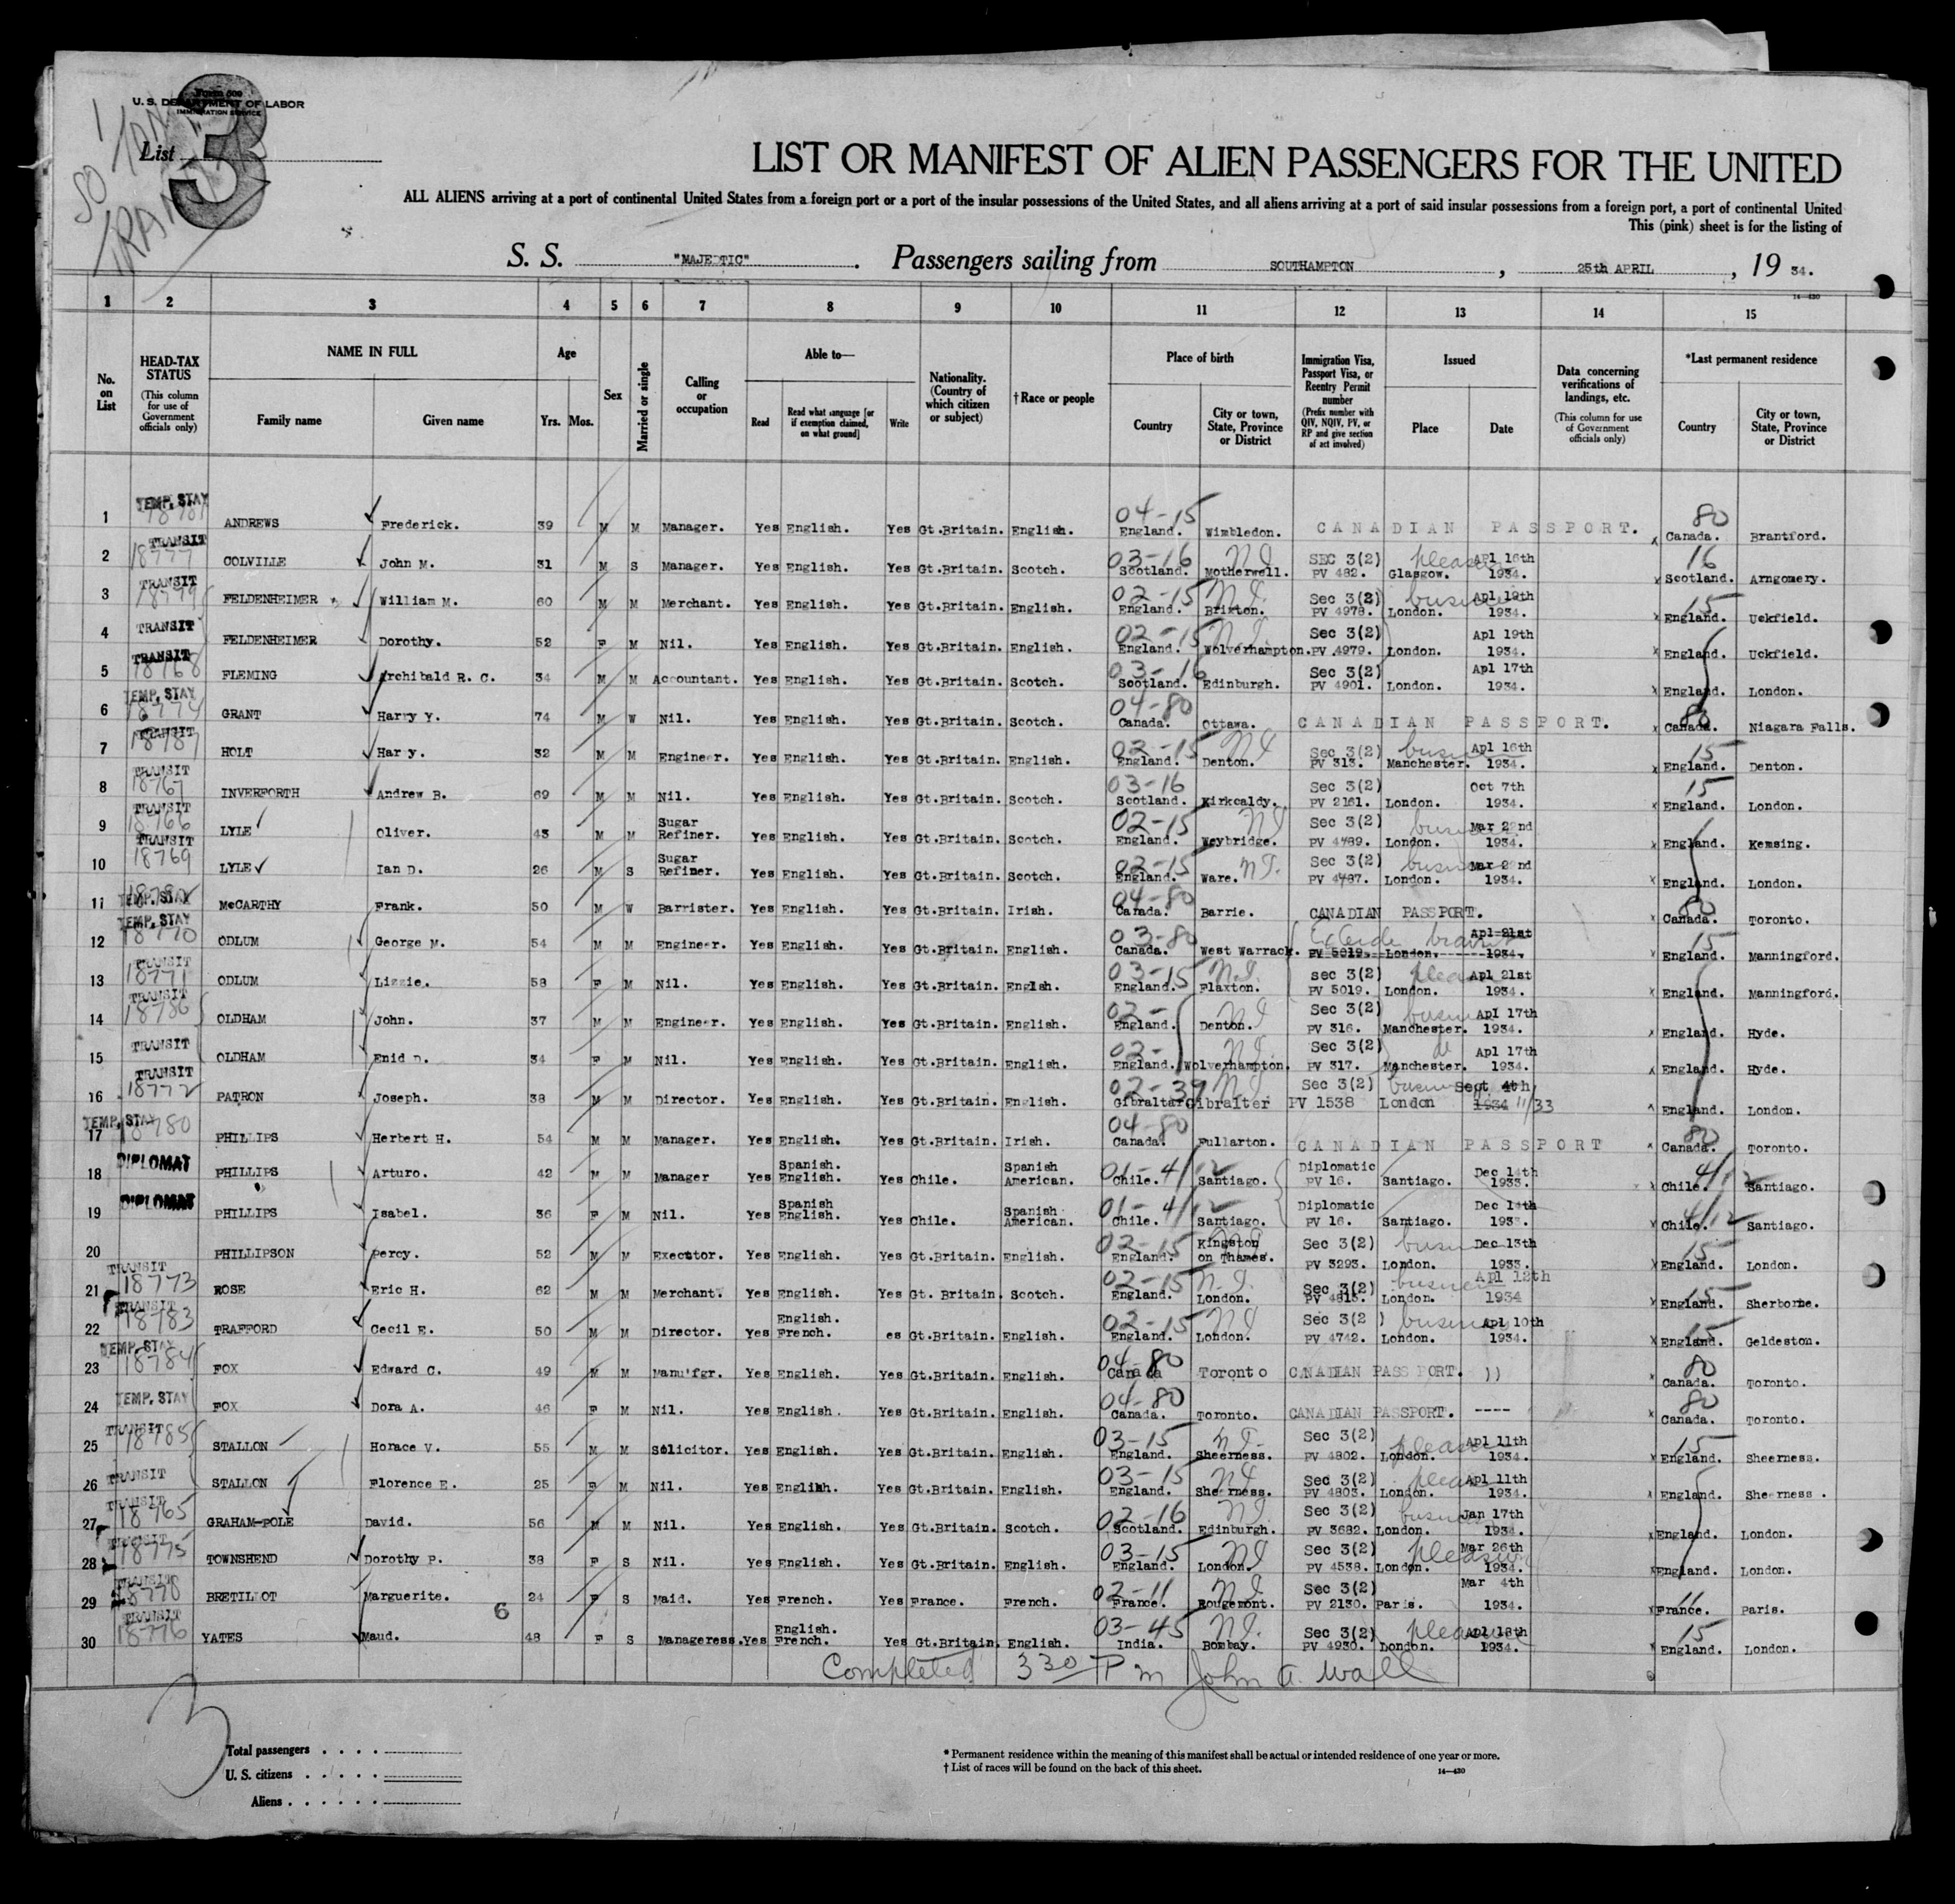 Form 500
U. S. DEPARTMENT OF LABOR
IMMIGRATION SERVICE
List 3
LIST OR MANIFEST OF ALIEN PASSENGERS FOR THE UNITED
ALL ALIENS arriving at a port of continental United States from a foreign port or a port of the insular possessions of the United States, and all aliens arriving at a port of said insular possessions from a foreign port, a port of continental United
This (pink) sheet is for the listing of
S. S. "MAJESTIC" . Passengers sailing from SOUTHAMPTON , 25th APRIL , 19 34.
14-430
1 2 3 4 5 6 7 8 9 10 11 12 13 14 15
No. on List
HEAD-TAX STATUS (This column for use of Government officials only)
NAME IN FULL Family name Given name
Age Yrs. Mos.
Sex
Married or single
Calling or occupation
Able to— Read Read what language [or if exemption claimed, on what ground] Write
Nationality. (Country of which citizen or subject)
†Race or people
Place of birth Country City or town, State, Province or District
Immigration Visa, Passport Visa, or Reentry Permit number (Prefix number with QIV, NQIV, PV, or RP and give section of act involved)
Issued Place Date
Data concerning verifications of landings, etc. (This column for use of Government officials only)
*Last permanent residence Country City or town, State, Province or District
1 TEMP. STAY ANDREWS Frederick. 39 M M Manager. Yes English. Yes Gt.Britain. English. 04-15 England. Wimbledon. CANADIAN PASSPORT. 80 Canada. Brantford.
2 TRANSIT 18777 COLVILLE John M. 31 M S Manager. Yes English. Yes Gt.Britain. Scotch. 03-16 Scotland. Motherwell. SEC 3(2) PV 482. Glasgow. Apl 16th 1934. 16 Scotland. Arngomery.
3 TRANSIT 18779 FELDENHEIMER William M. 60 M M Merchant. Yes English. Yes Gt.Britain. English. 02-15 England. Brixton. Sec 3(2) PV 4978. London. Apl 19th 1934. 15 England. Uckfield.
4 TRANSIT FELDENHEIMER Dorothy. 52 F M Nil. Yes English. Yes Gt.Britain. English. 02-15 England. Wolverhampton. Sec 3(2) PV 4979. London. Apl 19th 1934. England. Uckfield.
5 TRANSIT 18768 FLEMING Archibald R. C. 34 M M Accountant. Yes English. Yes Gt.Britain. Scotch. 03-16 Scotland. Edinburgh. Sec 3(2) PV 4901. London. Apl 17th 1934. England. London.
6 TEMP. STAY 18774 GRANT Harry Y. 74 M W Nil. Yes English. Yes Gt.Britain. Scotch. 04-80 Canada. Ottawa. CANADIAN PASSPORT. 80 Canada. Niagara Falls.
7 TRANSIT 18787 HOLT Har y. 32 M M Engineer. Yes English. Yes Gt.Britain. English. 02-15 England. Denton. Sec 3(2) PV 313. Manchester. Apl 16th 1934. 15 England. Denton.
8 TRANSIT 18767 INVERFORTH Andrew B. 69 M M Nil. Yes English. Yes Gt.Britain. Scotch. 03-16 Scotland. Kirkcaldy. Sec 3(2) PV 2161. London. Oct 7th 1934. 15 England. London.
9 TRANSIT 18766 LYLE Oliver. 43 M M Sugar Refiner. Yes English. Yes Gt.Britain. Scotch. 02-15 England. Weybridge. Sec 3(2) PV 4489. London. Mar 22nd 1934. England. Kemsing.
10 TRANSIT 18769 LYLE Ian D. 26 M S Sugar Refiner. Yes English. Yes Gt.Britain. Scotch. 02-15 England. Ware. Sec 3(2) PV 4487. London. Mar 22nd 1934. England. London.
11 TEMP. STAY McCARTHY Frank. 50 M W Barrister. Yes English. Yes Gt.Britain. Irish. 04-80 Canada. Barrie. CANADIAN PASSPORT. 80 Canada. Toronto.
12 TEMP. STAY 18770 ODLUM George M. 54 M M Engineer. Yes English. Yes Gt.Britain. English. 03-80 Canada. West Warrack. PV 5019. London. Apl 21st 1934. 15 England. Manningford.
13 TRANSIT 18771 ODLUM Lizzie. 58 F M Nil. Yes English. Yes Gt.Britain. English. 03-15 England. Flaxton. sec 3(2) PV 5019. London. Apl 21st 1934. England. Manningford.
14 TRANSIT 18786 OLDHAM John. 37 M M Engineer. Yes English. Yes Gt.Britain. English. 02- England. Denton. Sec 3(2) PV 316. Manchester. Apl 17th 1934. England. Hyde.
15 TRANSIT OLDHAM Enid D. 34 F M Nil. Yes English. Yes Gt.Britain. English. 02- England. Wolverhampton. Sec 3(2) PV 317. Manchester. Apl 17th 1934. England. Hyde.
16 TRANSIT 18772 PATRON Joseph. 38 M M Director. Yes English. Yes Gt.Britain. English. 02-39 Gibraltar Gibralter Sec 3(2) PV 1538 London business Sept 4th 1934 11/33 England. London.
17 TEMP. STAY 18780 PHILLIPS Herbert H. 54 M M Manager. Yes English. Yes Gt.Britain. Irish. 04-80 Canada. Fullarton. CANADIAN PASSPORT 80 Canada. Toronto.
18 DIPLOMAT PHILLIPS Arturo. 42 M M Manager Yes Spanish. English. Yes Chile. Spanish American. 01-4/12 Chile. Santiago. Diplomatic PV 16. Santiago. Dec 14th 1933. 4/12 Chile. Santiago.
19 DIPLOMAT PHILLIPS Isabel. 36 F M Nil. Yes Spanish English. Yes Chile. Spanish American. 01-4/12 Chile. Santiago. Diplomatic PV 16. Santiago. Dec 14th 1933. 4/12 Chile. Santiago.
20 PHILLIPSON Percy. 52 M M Executor. Yes English. Yes Gt.Britain. English. 02-15 England. Kingston on Thames. Sec 3(2) PV 3293. London. Dec 13th 1933. 15 England. London.
21 TRANSIT 18773 ROSE Eric H. 62 M M Merchant. Yes English. Yes Gt. Britain. Scotch. 02-15 England. London. Sec 3(2) PV 4815. London. business Apl 12th 1934 15 England. Sherborne.
22 TRANSIT 18783 TRAFFORD Cecil E. 50 M M Director. Yes English. French. es Gt.Britain. English. 02-15 England. London. Sec 3(2 ) PV 4742. London. business Apl 10th 1934. 15 England. Geldeston.
23 TEMP. STAY 18784 FOX Edward C. 49 M M Manu'fgr. Yes English. Yes Gt.Britain. English. 04-80 Canada Toronto CANADIAN PASSPORT. )) 80 Canada. Toronto.
24 TEMP. STAY FOX Dora A. 46 F M Nil. Yes English. Yes Gt.Britain. English. 04-80 Canada. Toronto. CANADIAN PASSPORT. ---- 80 Canada. Toronto.
25 TRANSIT 18785 STALLON Horace V. 55 M M Solicitor. Yes English. Yes Gt.Britain. English. 03-15 England. Sheerness. Sec 3(2) PV 4802. London. Apl 11th 1934. 15 England. Sheerness.
26 TRANSIT STALLON Florence E. 25 F M Nil. Yes English. Yes Gt.Britain. English. 03-15 England. Sheerness. Sec 3(2) PV 4803. London. Apl 11th 1934. England. Sheerness .
27 TRANSIT 18765 GRAHAM-POLE David. 56 M M Nil. Yes English. Yes Gt.Britain. Scotch. 02-16 Scotland. Edinburgh. Sec 3(2) PV 3682. London. Jan 17th 1934. England. London.
28 TRANSIT 18775 TOWNSHEND Dorothy P. 38 F S Nil. Yes English. Yes Gt.Britain. English. 03-15 England. London. Sec 3(2) PV 4538. London. pleasure Mar 26th 1934. England. London.
29 TRANSIT 18778 BRETILLOT Marguerite. 24 F S Maid. Yes French. Yes France. French. 02-11 France. Rougemont. Sec 3(2) PV 2130. Paris. Mar 4th 1934. 11 France. Paris.
6
30 TRANSIT 18776 YATES Maud. 48 F S Manageress. Yes English. French. Yes Gt.Britain. English. 03-45 India. Bombay. Sec 3(2) PV 4930. London. pleasure Apl 18th 1934. 15 England. London.
Completed 330 Pm John A. Wall
3
Total passengers . . . .
U. S. citizens . . . . .
Aliens . . . . . .
* Permanent residence within the meaning of this manifest shall be actual or intended residence of one year or more.
† List of races will be found on the back of this sheet.
14-430